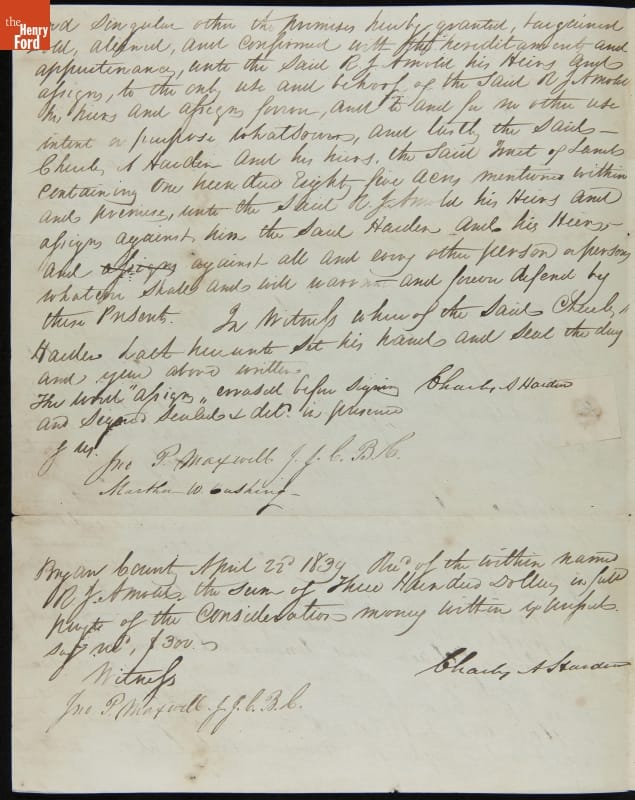 the
Henry
Ford
and Singular other the premises hereby granted, bargained
sold, aliened, and confirmed with the hereditaments and
appurtenances, unto the Said R. J. Arnold his Heirs and
assigns, to the only use and behoof of the Said R J Arnold
his heirs and assigns forever, and to and for no other use
intent or purpose whatsoever, and lastly the Said
Charles A Harden and his heirs. the Said Tract of Land
Containing One hundred Eighty five acres mentioned within
and premises, unto the Said R. J. Arnold his Heirs and
assigns against him the Said Harden and his Heirs
and assigns against all and every other person or persons
whatever Shall and will warrant and forever defend by
these Presents. In Witness whereof the Said Charles
Harden hath hereunto Set his hand and Seal the day
and year above written
The word "assigns" erased before signing Charles A Harden
and Signed Sealed & deld. in presence
of us.
Jno P. Maxwell J. J. C. B. C.
Martha W. Cushing
Bryan County April 22d 1839 Recd of the within named
R. J. Arnold, the Sum of Three Hundred Dollars in full
of the Consideration money within
$300
Witness Charles A Harden
Jno P. Maxwell J. J. C. B. C.